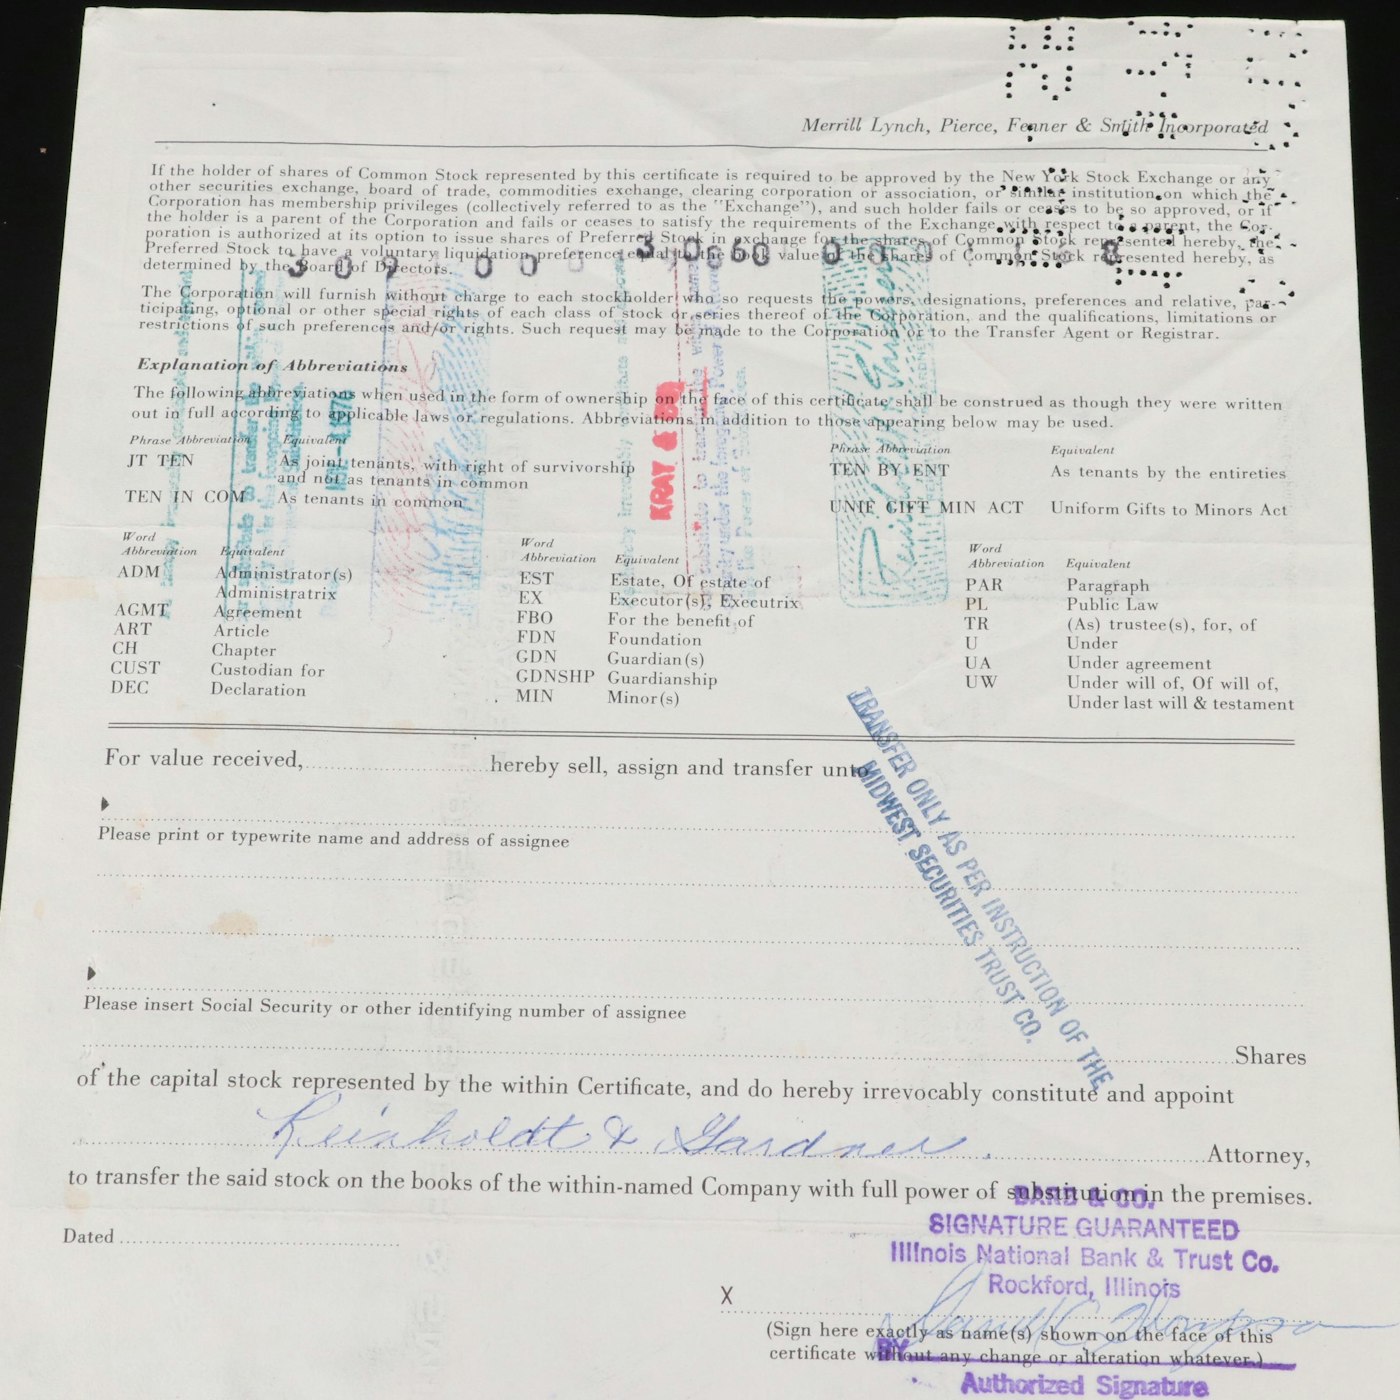 Merrill Lynch, Pierce, Fenner & Smith Incorporated
If the holder of shares of Common Stock represented by this certificate is required to be approved by the New York Stock Exchange or any
other securities exchange, board of trade, commodities exchange, clearing corporation or association, or similar institution on which the
Corporation has membership privileges (collectively referred to as the "Exchange"), and such holder fails or ceases to be so approved, or if
the holder is a parent of the Corporation and fails or ceases to satisfy the requirements of the Exchange with respect to a parent, the Cor-
poration is authorized at its option to issue shares of Preferred Stock in exchange for the shares of Common Stock represented hereby, the
Preferred Stock to have a voluntary liquidation preference equal to the book value of the shares of Common Stock represented hereby, as
determined by the Board of Directors.
The Corporation will furnish without charge to each stockholder who so requests the powers, designations, preferences and relative, par-
ticipating, optional or other special rights of each class of stock or series thereof of the Corporation, and the qualifications, limitations or
restrictions of such preferences and/or rights. Such request may be made to the Corporation or to the Transfer Agent or Registrar.
Explanation of Abbreviations
The following abbreviations when used in the form of ownership on the face of this certificate shall be construed as though they were written
out in full according to applicable laws or regulations. Abbreviations in addition to those appearing below may be used.
Phrase Abbreviation Equivalent Phrase Abbreviation Equivalent
JT TEN As joint tenants, with right of survivorship TEN BY ENT As tenants by the entireties
and not as tenants in common
TEN IN COM As tenants in common UNIF GIFT MIN ACT Uniform Gifts to Minors Act
KRAY &
Word Word Word
Abbreviation Equivalent Abbreviation Equivalent Abbreviation Equivalent
ADM Administrator(s) EST Estate, Of estate of PAR Paragraph
Administratrix EX Executor(s), Executrix PL Public Law
AGMT Agreement FBO For the benefit of TR (As) trustee(s), for, of
ART Article FDN Foundation U Under
CH Chapter GDN Guardian(s) UA Under agreement
CUST Custodian for GDNSHP Guardianship UW Under will of, Of will of,
DEC Declaration MIN Minor(s) Under last will & testament
For value received, hereby sell, assign and transfer unto
TRANSFER ONLY AS PER INSTRUCTION OF THE
MIDWEST SECURITIES TRUST CO.
Please print or typewrite name and address of assignee
Please insert Social Security or other identifying number of assignee
Shares
of the capital stock represented by the within Certificate, and do hereby irrevocably constitute and appoint
Reinholdt & Gardner. Attorney,
to transfer the said stock on the books of the within-named Company with full power of substitution in the premises.
BARD & CO.
SIGNATURE GUARANTEED
Dated
Illinois National Bank & Trust Co.
Rockford, Illinois
X
(Sign here exactly as name(s) shown on the face of this
certificate without any change or alteration whatever.)
BY
Authorized Signature